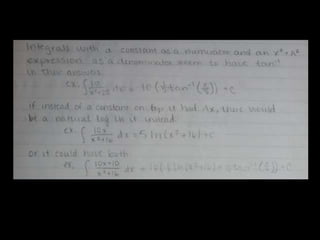 Integrals with a constant as a numerator and an x² + k²
expression as a denominator seem to have tan⁻¹
in their answers.
ex. ∫ 10/(x²+25) dx = 10 (1/5 tan⁻¹ (x/5)) + C
If instead of a constant on top it had Ax, there would
be a natural log in it instead.
ex. ∫ 10x/(x²+16) dx = 5 ln(x²+16) + C
or it could have both
ex. ∫ (10x+10)/(x²+16) dx =